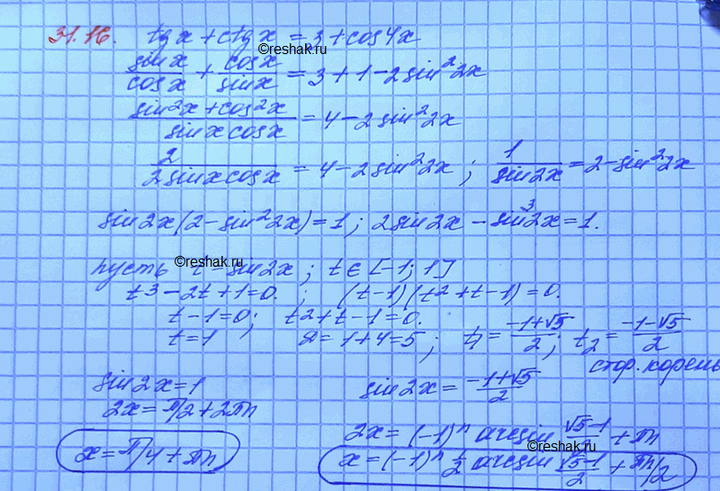 31.16. tg x + ctg x = 3 + cos 4x
©reshak.ru
sin x/cos x + cos x/sin x = 3 + 1 - 2 sin² 2x
(sin²x + cos²x)/(sin x cos x) = 4 - 2 sin² 2x
2/(2 sin x cos x) = 4 - 2 sin² 2x ; 1/sin 2x = 2 - sin² 2x
sin 2x (2 - sin² 2x) = 1 ; 2 sin 2x - sin³ 2x = 1.
пусть t = sin 2x ; t ∈ [-1; 1]
©reshak.ru
t3 - 2t + 1 = 0. ; (t - 1)(t² + t - 1) = 0.
t - 1 = 0 ; t2 + t - 1 = 0.
t = 1 D = 1 + 4 = 5 ; t₁ = (-1 + √5)/2 ; t₂ = (-1 - √5)/2
стор. корень
sin 2x = 1 sin 2x = (-1 + √5)/2
2x = π/2 + 2πn
2x = (-1)ⁿ arcsin (√5 - 1)/2 + πn
©reshak.ru
x = π/4 + πn x = (-1)ⁿ 1/2 arcsin (√5 - 1)/2 + πn/2